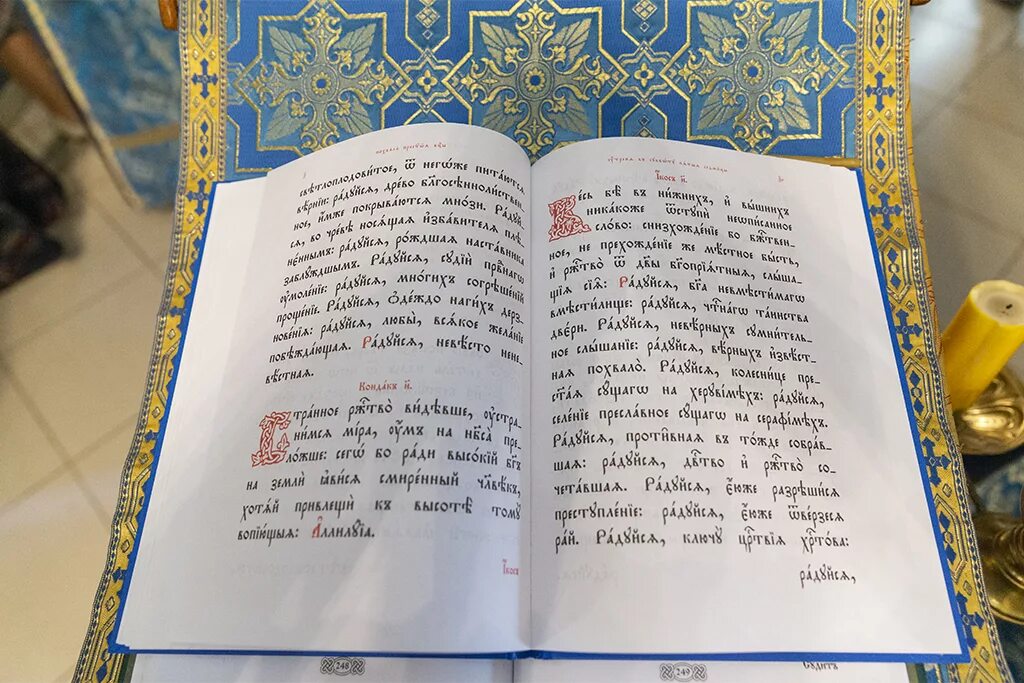 свѣтлоплодови́тое, ѿ негѡ́же пита́ются
вѣ́рнїи: ра́дуйся, дре́во бл҃госѣннолиственное
ное, и́мже покрыва́ются мно́зи. Ра́дуй_
ся, во чре́вѣ нося́щая и҆зба́вителя плѣ_
не́ннымъ: ра́дуйся, ро́ждшая наста́вника
заблу́ждшымъ. Ра́дуйся, сꙋдїи́ пра́внагѡ
ᲂу҆моле́нїе: ра́дуйся, мно́гихъ согрѣше́нїй
проще́нїе. Ра́дуйся, ѻ҆де́ждо наги́хъ дерз_
нове́нїя: ра́дуйся, любы̀, вся́кое жела́нїе
побѣжда́ющая. Ра́дуйся, невѣ́сто нене_
вѣ́стная.
Конда́къ и҃.
Стра́нное рж҃тво̀ ви́дѣвше, ᲂу҆стра_
ни́мся мі́ра, ᲂу҆́мъ на нб҃са̀ пре_
ло́жше: сегѡ̀ бо ра́ди высо́кїй бг҃ъ
на землѝ ꙗ҆ви́ся смире́нный чл҃вѣ́къ,
хотя́й привлещѝ къ высотѣ̀ томꙋ̀
вопїю́щыя: А҆ллилꙋ́їа.
І҆́косъ
І҆́косъ и҃.
Ве́сь бѣ̀ въ ни́жнихъ, и҆ вы́шнихъ
ника́коже ѿстꙋпѝ неѡпи́санное
сло́во: снизхожде́нїе бо бж҃твен_
ное, не прехожде́нїе же мѣ́стное бы́сть,
и҆ рж҃тво̀ ѿ дв҃ы бг҃опрїя́тныя, слы́ша_
щїя сїѧ̑: Ра́дуйся, бг҃а невмѣсти́магѡ
вмѣсти́лище: ра́дуйся, чⷭ҇тна́гѡ та́инства
две́ри. Ра́дуйся, невѣ́рныхъ сꙋмни́тель_
ное слы́шанїе: ра́дуйся, вѣ́рныхъ и҆звѣ́ст_
ная похвало̀. Ра́дуйся, колесни́це пре_
ст҃а́я сꙋ́щагѡ на херꙋві́мѣхъ: ра́дуйся,
селе́нїе пресла́вное сꙋ́щагѡ на серафі́мѣхъ.
Ра́дуйся, проти́вная въ то́жде собра́в_
шая: ра́дуйся, дв҃тво и҆ рж҃тво̀ со_
чета́вшая. Ра́дуйся, є҆́юже разрѣши́ся
престꙋпле́нїе: ра́дуйся, є҆́юже ѿве́рзеся
ра́й. Ра́дуйся, ключꙋ̀ црⷭ҇твїя хрⷭ҇то́ва:
ра́дуйся,
248
249
Сꙋди́тъ